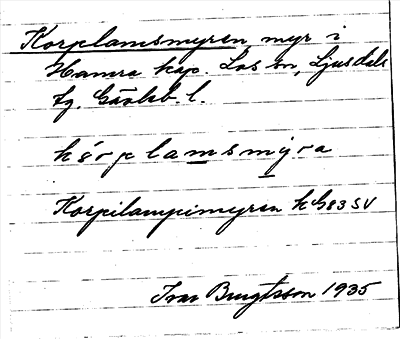 Korplamsmyren, myr i
Hamra kap. Los sn, Ljusdals
tg. Gävleb. l.
kȯ́rplamsmyra
Korpilampimyren k G83SV
Ivar Bengtsson 1935